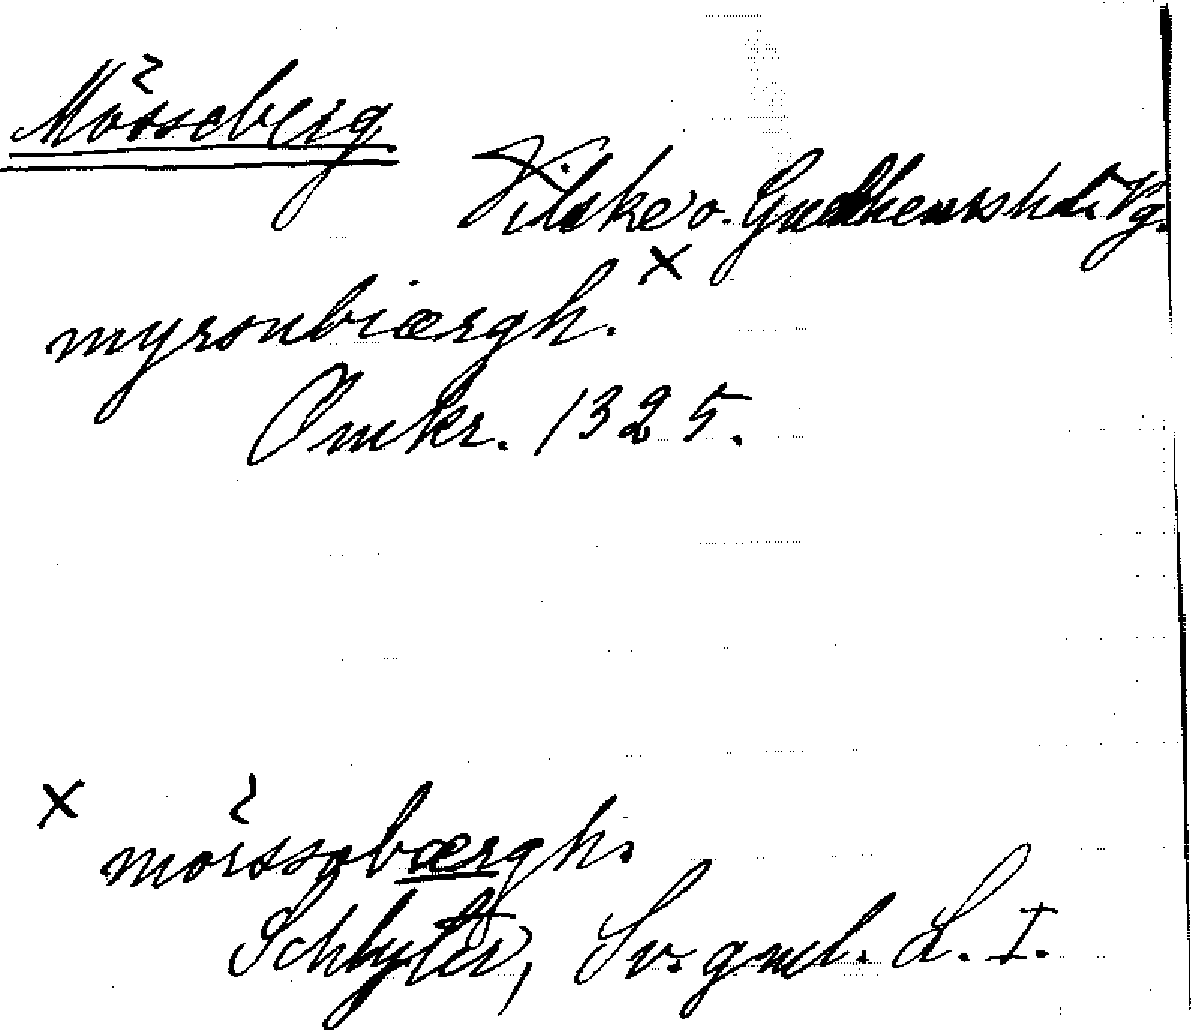 Mösseberg
Vilske o. Gudhems hd. Vg.
myrsnbiærgh. ×
Omkr. 1325.
× mörssobærgh.
Schlyter, Sv. gml. L. I.